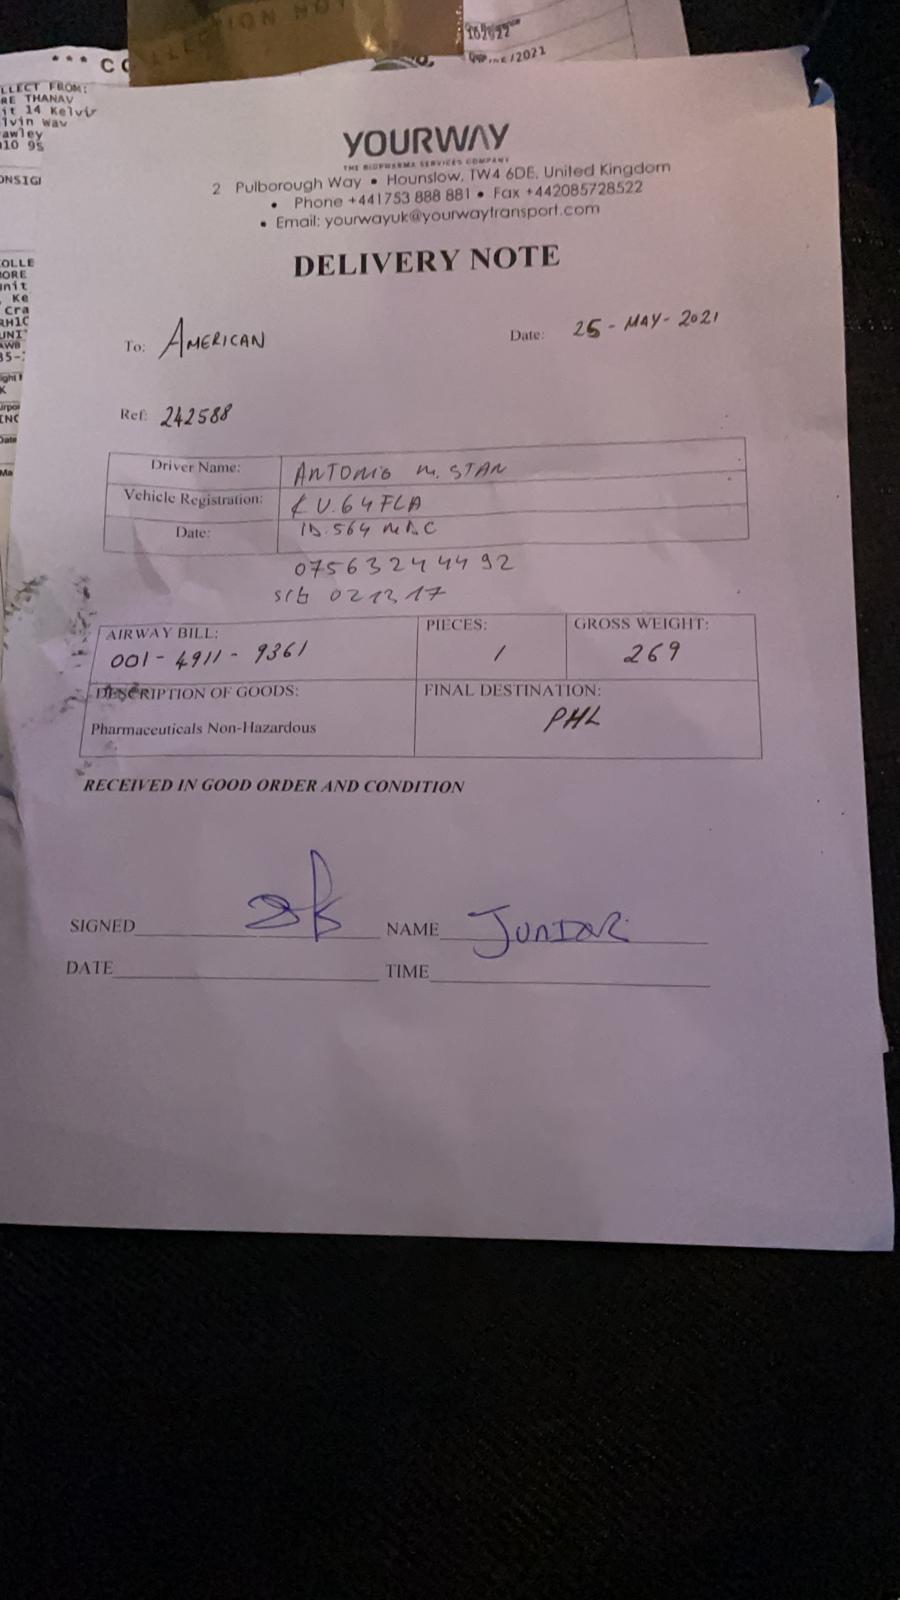 *** CO
LLECT FROM:
RE THANAV
it 14 Kelvir
lvin Way
awley
10 9S
ONSIGI
OLLE
ORE
nit
Ke
Cra
RH10
UNI
AWB
INC
Date
COLLECTION NOT
YOURWAY
THE BIOPHARMA SERVICES COMPANY
2 Pulborough Way • Hounslow, TW4 6DE, United Kingdom
• Phone +441753 888 881 • Fax +442085728522
• Email: yourwayuk@yourwaytransport.com
DELIVERY NOTE
To: AMERICAN Date: 25-MAY-2021
Ref: 242588
Driver Name: ANTONIO M. STAN
Vehicle Registration: KU.64FLA
Date: ID.564 MDC
07563244492
021317
AIRWAY BILL: PIECES: GROSS WEIGHT:
001-4911-9361 1 269
DESCRIPTION OF GOODS: FINAL DESTINATION:
Pharmaceuticals Non-Hazardous PHL
RECEIVED IN GOOD ORDER AND CONDITION
SIGNED NAME JUNIOR
DATE TIME